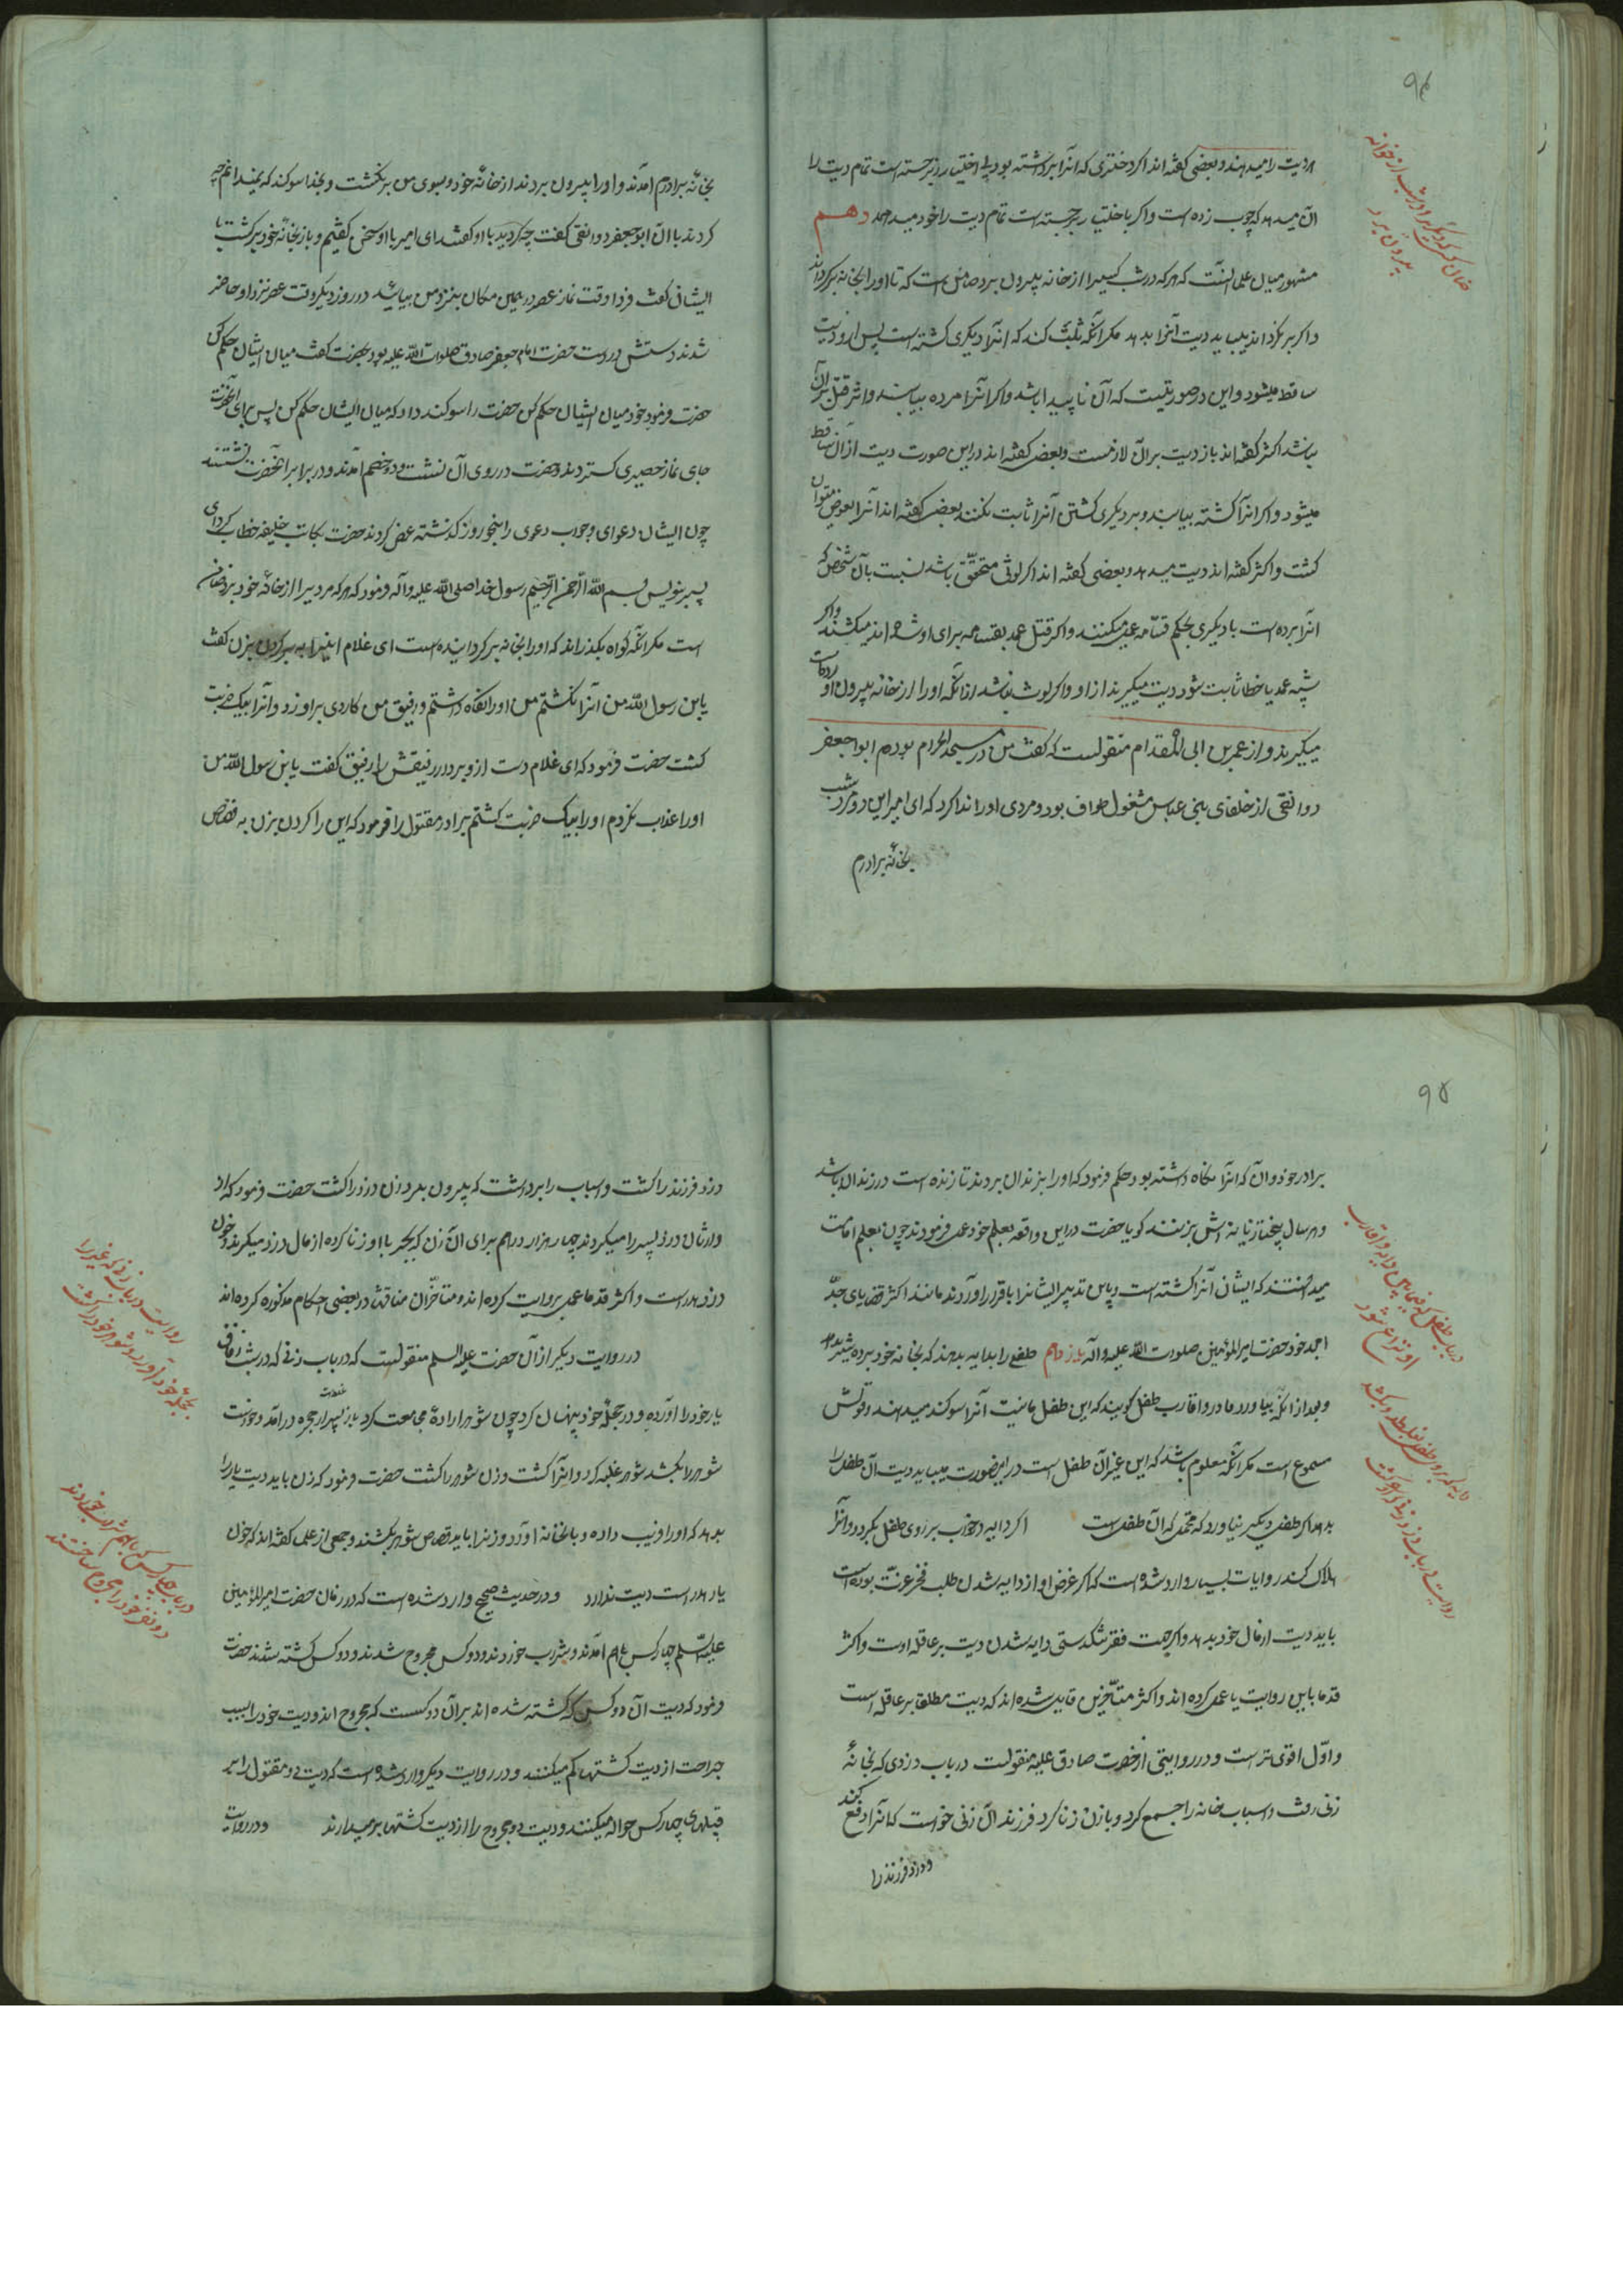 ۹۴
ضمان کسی که دیگری را در شب از خانه
بیرون برد
هر دیت را میدهند و بعضی گفته‌اند اگر دختری که انرا برداشته بود بی اختیار برجسته است تمام دیت را
آن میدهد که چوب زده است و اگر باختیار برجسته است تمام دیت را خود میدهد دهم
مشهور میان علما انست که هر که در شب کسیرا از خانه بیرون برد ضامن است که تا او را بخانه برگرداند
و اگر برنگرداند میباید دیت آنرا بدهد مگر آنکه ثابت کند که انرا دیگری کشته است پس از او دیت
ساقط میشود و این در صورتیست که آن ناپیدا باشد و اگر آنرا مرده بیابند و اثر قتل بر آن
نباشد اکثر گفته‌اند باز دیت بر آن لازمست و بعضی گفته‌اند در این صورت دیت از آن ساقط
میشود و اگر انرا کشته بیابند و بر دیگری کشتن آنرا ثابت نکند بعضی گفته‌اند آنرا بعوض میتوان
کشت و اکثر گفته‌اند دیت میدهد و بعضی گفته‌اند اگر لوثی متحقق باشد نسبت بآن شخص که
انرا برده است یا دیگری بحکم قسامه عمل میکنند و اگر قتل عمد بقسامه برای او شد اند میکشند و اگر
شبه عمد یا خطا ثابت شود دیت میگیرند از او و اگر لوث نباشد از آنکه او را از خانه بیرون آورده است
میگیرند و از عمرو بن ابی المقدام منقولست که گفت من در مسجد الحرام بودم ابوا جعفر
دوانقی از خلفای بنی عباس مشغول طواف بود و مردی او را ندا کرد که ای امیر این دو مرد شب
بخانهٔ برادرم
بخانهٔ برادرم آمدند و او را بیرون بردند از خانهٔ خود و بسوی من برنگشت و بخدا سوگند که نمیدانم چه
کردند با ان ابو جعفر دوانقی گفت چه کردید با او گفتند ای امیر با او سخن گفتیم و باز بخانهٔ خود برگشت با
ایشان گفت فردا وقت نماز عصر در همین مکان بنزد من بیایند در روز دیگر وقت عصر نزد او حاضر
شدند دستش در دست حضرت امام جعفر صادق صلوات الله علیه بود بحضرت گفت میان ایشان حکم کن
حضرت فرمود خود میان ایشان حکم کن حضرت را سوگند داد که میان ایشان حکم کن پس برای آنحضرت
جای نماز حصیری گستردند و حضرت در روی آن نشست و دو خصم آمدند و در برابر آنحضرت نشستند
چون ایشان دعوای و جواب دعوی را بنحو روز گذشته عرض کردند حضرت بکاتب خلیفه خطاب کرد ای
پسر بنویس بسم الله الرحمن الرحیم رسول خدا صلی الله علیه و آله فرمود که هر که مردیرا از خانهٔ خود برد ضامن
است مگر آنکه گواه بگذراند که او را بخانه برگردانیده است ای غلام اینرا ببر گردن بزن گفت
یابن رسول الله من انرا نکشتم من او را نگاه داشتم و رفیق من کاردی بر او زد و آنرا بیک ضربت
کشت حضرت فرمود که ای غلام دست از او بردار رفیقش را رفیق گفت یابن رسول الله من
او را عذاب نکردم او را بیک ضربت کشتم برادر مقتول را فرمود که این را گردن بزن به قصاص
۹۵
در باب طفل که فیمابین دایه و اقارب
او نزاع شود
دایه که بر روی طفل بغلطد و بکشد
روایت در باب دزد و زنی که او را کشت
برادر خود و آن که انرا نگاه داشته بود حکم فرمود که او را بزندان بردند تا زنده است در زندان باشد
و هر سال پنجاه تازیانه اش بزنند گویا حضرت در این واقعه بعلم خود عمل فرمودند چون بعلم امامت
میدانستند که ایشان آنرا کشته است و باین تدبیر ایشانرا باقرار آوردند مانند اکثر قضایای جد
امجد خود حضرت امیر المؤمنین صلوات الله علیه و آله یازدهم طفلی را بدایه بدهند که بخانه خود برده شیر بدهد
و بعد از انکه بیاورد مادر و اقارب طفل گویند که این طفل ما نیست آنرا سوگند میدهند و قولش
مسموع است مگر آنکه معلوم باشد که این غیر آن طفل است در این صورت میباید دیت آن طفل را
بدهد اگر طفل دیگیر نیاورد که محتمل که آن طفلست اگر دایه در خواب بر روی طفل بگردد و آنرا
هلاک کند روایات بسیار وارد شده است که اگر غرض او از دایه شدن طلب فخر عزت بوده است
باید دیت از مال خود بدهد و اگر جهت فقر تنگدستی دایه شدن دیت بر عاقله اوست و اکثر
قدما باین روایت یا عمل کرده‌اند و اکثر متأخرین قایل شده‌اند که دیت مطلقا بر عاقله است
و اول اقوی تر است و در روایتی از حضرت صادق علیه منقولست در باب دزدی که بخانهٔ
زنی رفت و اسباب خانه را جمع کرد و با زن زنا کرد فرزند آن زنی خواست که آنرا دفع کند
و دزد فرزند را
دزد فرزند را کشت و اسباب را برداشت که بیرون بعد زن دزد را کشت حضرت فرمود که از
وارثان دزد پسر را میگردند چهار هزار درهم برای ان زن که بجبر با او زنا کرده از مال دزد میگیرند و خون
دزد هدر است و اکثر قدما عمل بروایت کرده‌اند و متأخران مناقشه در بعضی احکام مذکوره کرده‌اند
در روایت دیگر از آن حضرت علیه السلم منقولیست که در باب زنی که در شب زفاف
یار خود را آورده و در حجلهٔ خود پنهان کرد چون شوهر ارادهٔ مجامعت کرد یار از پس از حجره در آمد و خواست
شوهر را بکشد شوهر غلبه کرد و انرا کشت و زن شوهر را کشت حضرت فرمود که زن باید دیت یار را
بدهد که او را فریب داده و بانخانه آورد و زنرا باید بقصاص شوهر بکشند و جمعی از علما گفته‌اند که خون
یار هدر است دیت ندارد و در حدیث صحیح وارد شده است که در زمان حضرت امیر المؤمنین
علیه السلم چهار کس باهم آمدند و شراب خوردند و دو کس مجروح شدند و دو کس کشته شدند حضرت
فرمود که دیت ان دو کس که کشته شده‌اند بر آن دو کسست که مجروح اند و دیت خود را بسبب
جراحت از دیت کشتها کم میکنند و در روایت دیگر وارد شده است که دیت دو مقتول را بر
قبیلهای چهار کس حواله میکنند و دیت دو مجروح را از دیت کشتها بر میدارند و در روایت
روایت در باب زنی که غیر را
بحجلهٔ خود آورد و شوهر خود را کشت
در باب چهار کس که باهم شراب خوردند
دو نفر خود را مجروح ساختند